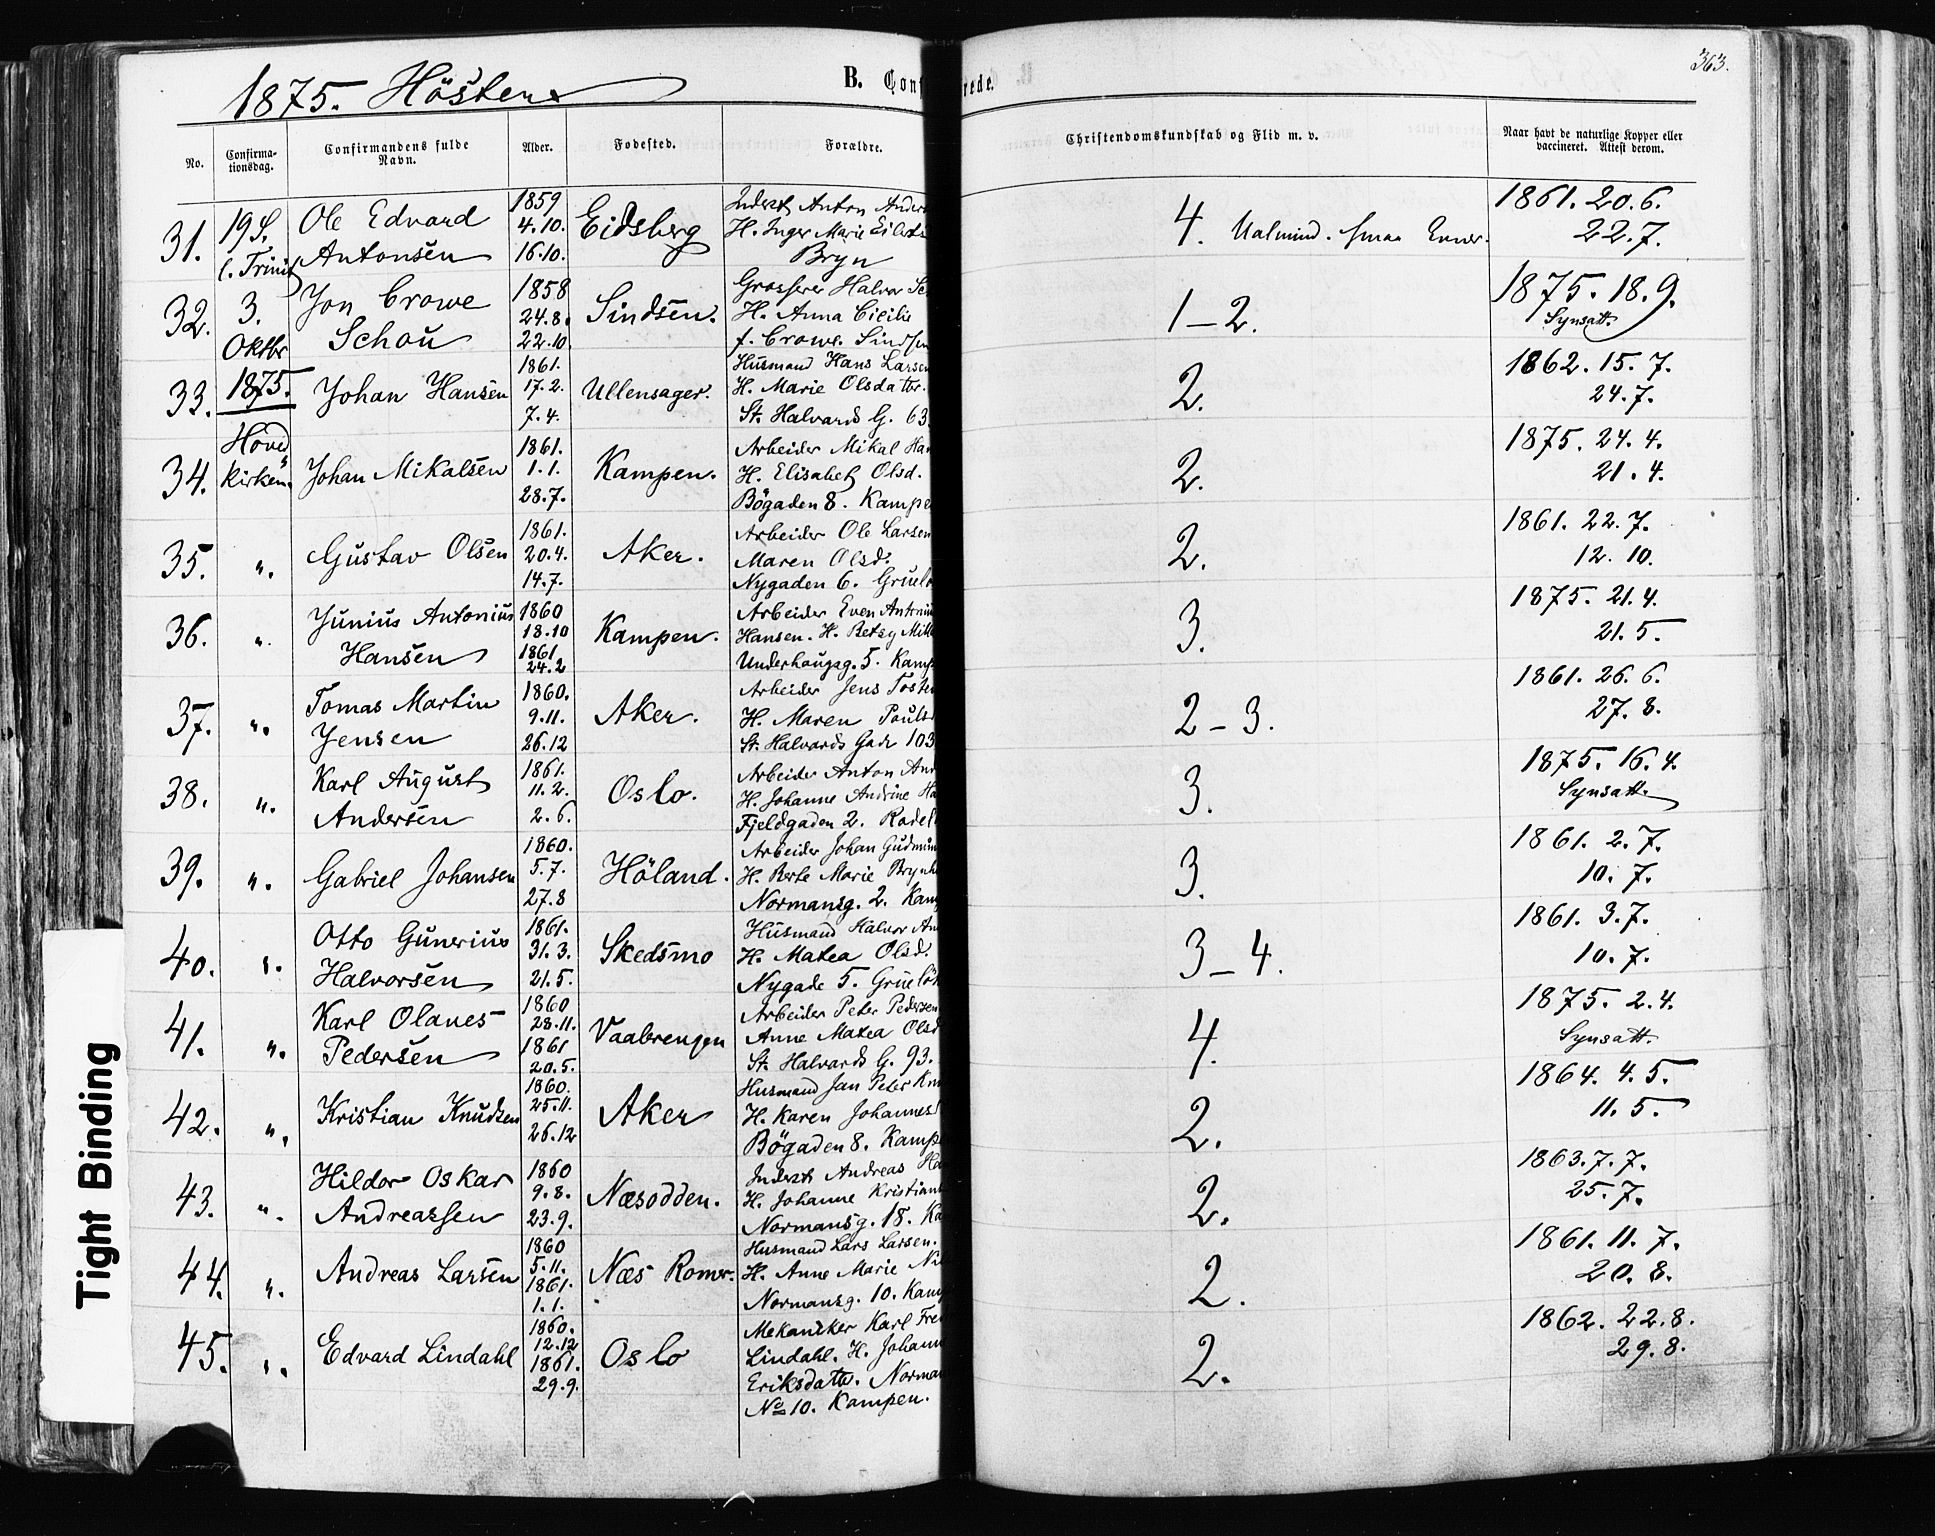 1875. Hösten
B. Conf
rede.
363.
No.
Confirma-
tionsdag.
Confirmandens fulde
Navn.
Alder.
Fødested.
Forældre.
Christendomskundskab og Flid m. v.
Naar havt de naturlige Kopper eller
vaccineret. Attest derom.
31.
19 S.
e. Trinit
Ole Edvard
Antonsen
1859
4.10.
16.10.
Eidsberg
Inderst Anton Anders
H. Inger Marie Eilerts
Bryn
4.
1861. 20.6.
22.7.
32.
3.
Oktbr
Jon Crowe
Schou
1858
24.8.
22.10.
Sindsen.
Grosserer Halvor Sc
H. Anna Cicilie
f. Crowe. Sindsen
1-2.
1875. 18.9.
Synsatt.
33.
1875.
Johan Hansen
1861.
17.2.
7.4.
Ullensager.
Husmand Hans Larsen
H. Marie Olsdatter.
St. Halvards G. 63.
2.
1862. 15.7.
24.7.
34.
Hoved
kirken.
Johan Mikalsen
1861.
1.1.
28.7.
Kampen.
Arbeider Mikal Han
H. Elisabet Olsd.
Bögaden 8. Kampen
2.
1875. 24.4.
21.4.
35.
".
Gustav Olsen
1861.
20.4.
14.7.
Aker.
Arbeider Ole Larsen
Maren Olsd.
Nygaden 6. Gruelö
2.
1861. 22.7.
12.10.
36.
".
Junius Antonius
Hansen
1860
18.10
1861
24.2
Kampen.
Arbeider Even Antonius
Hansen. H. Betsy Mitl
Underhaugsg. 5. Kamp
3.
1875. 21.4.
21.5.
37.
".
Tomas Martin
Jensen
1860.
9.11.
26.12
Aker.
Arbeider Jens Tosten
H. Maren Pouls
St. Halvards Gade 103
2-3.
1861. 26.6.
27.8.
38.
".
Karl August
Andersen
1861.
11.2.
2.6.
Oslo.
Arbeider Anton And
H. Johanne Andrine Ha
Fjeldgaden 2. Rodel
3.
1875. 16.4.
Synsatt.
39.
".
Gabriel Johansen
1860.
5.7.
27.8
Höland.
Arbeider Johan Gudmun
H. Berte Marie Brynh
Normansg. 2. Kam
3.
1861. 2.7.
10.7.
40.
".
Otto Gunerius
Halvorsen
1861.
31.3.
21.5.
Skedsmo
Husmand Halvor An
H. Matea Olsd.
Nygade 5. Gruelök
3-4.
1861. 3.7.
10.7.
41.
".
Karl Olaves
Pedersen
1860
28.11.
1861
20.5.
Vaalerengen
Arbeider Peter Pedersen
Anne Matea Olsd
St. Halvards G. 93.
4.
1875. 2.4.
Synsatt.
42.
".
Kristian Knudsen
1860.
25.11.
26.12
Aker
Husmand Jan Peter Knu
H. Karen Johannesd
Bögaden 8. Kampe
2.
1864. 4.5.
11.5.
43.
".
Hildor Oskar
Andreassen
1860
9.8.
23.9.
Næsodden.
Inderst Andreas Ha
H. Johanne Kristians
Normansg. 18. Ka
2.
1863. 7.7.
25.7.
44.
".
Andreas Larsen
1860
5.11.
1861.
1.1.
Næs Romer.
Husmand Lars Larsen.
H. Anne Marie Ni
Normansg. 10. Kam
2.
1861. 11.7.
20.8.
45.
".
Edvard Lindahl
1860.
12.12
1861.
29.9.
Oslo
Mekaniker Karl Fre
Lindahl. H. Johann
Eriksdatter. Norman
No 10. Kampen.
2.
1862. 22.8.
29.8.
Tight Binding